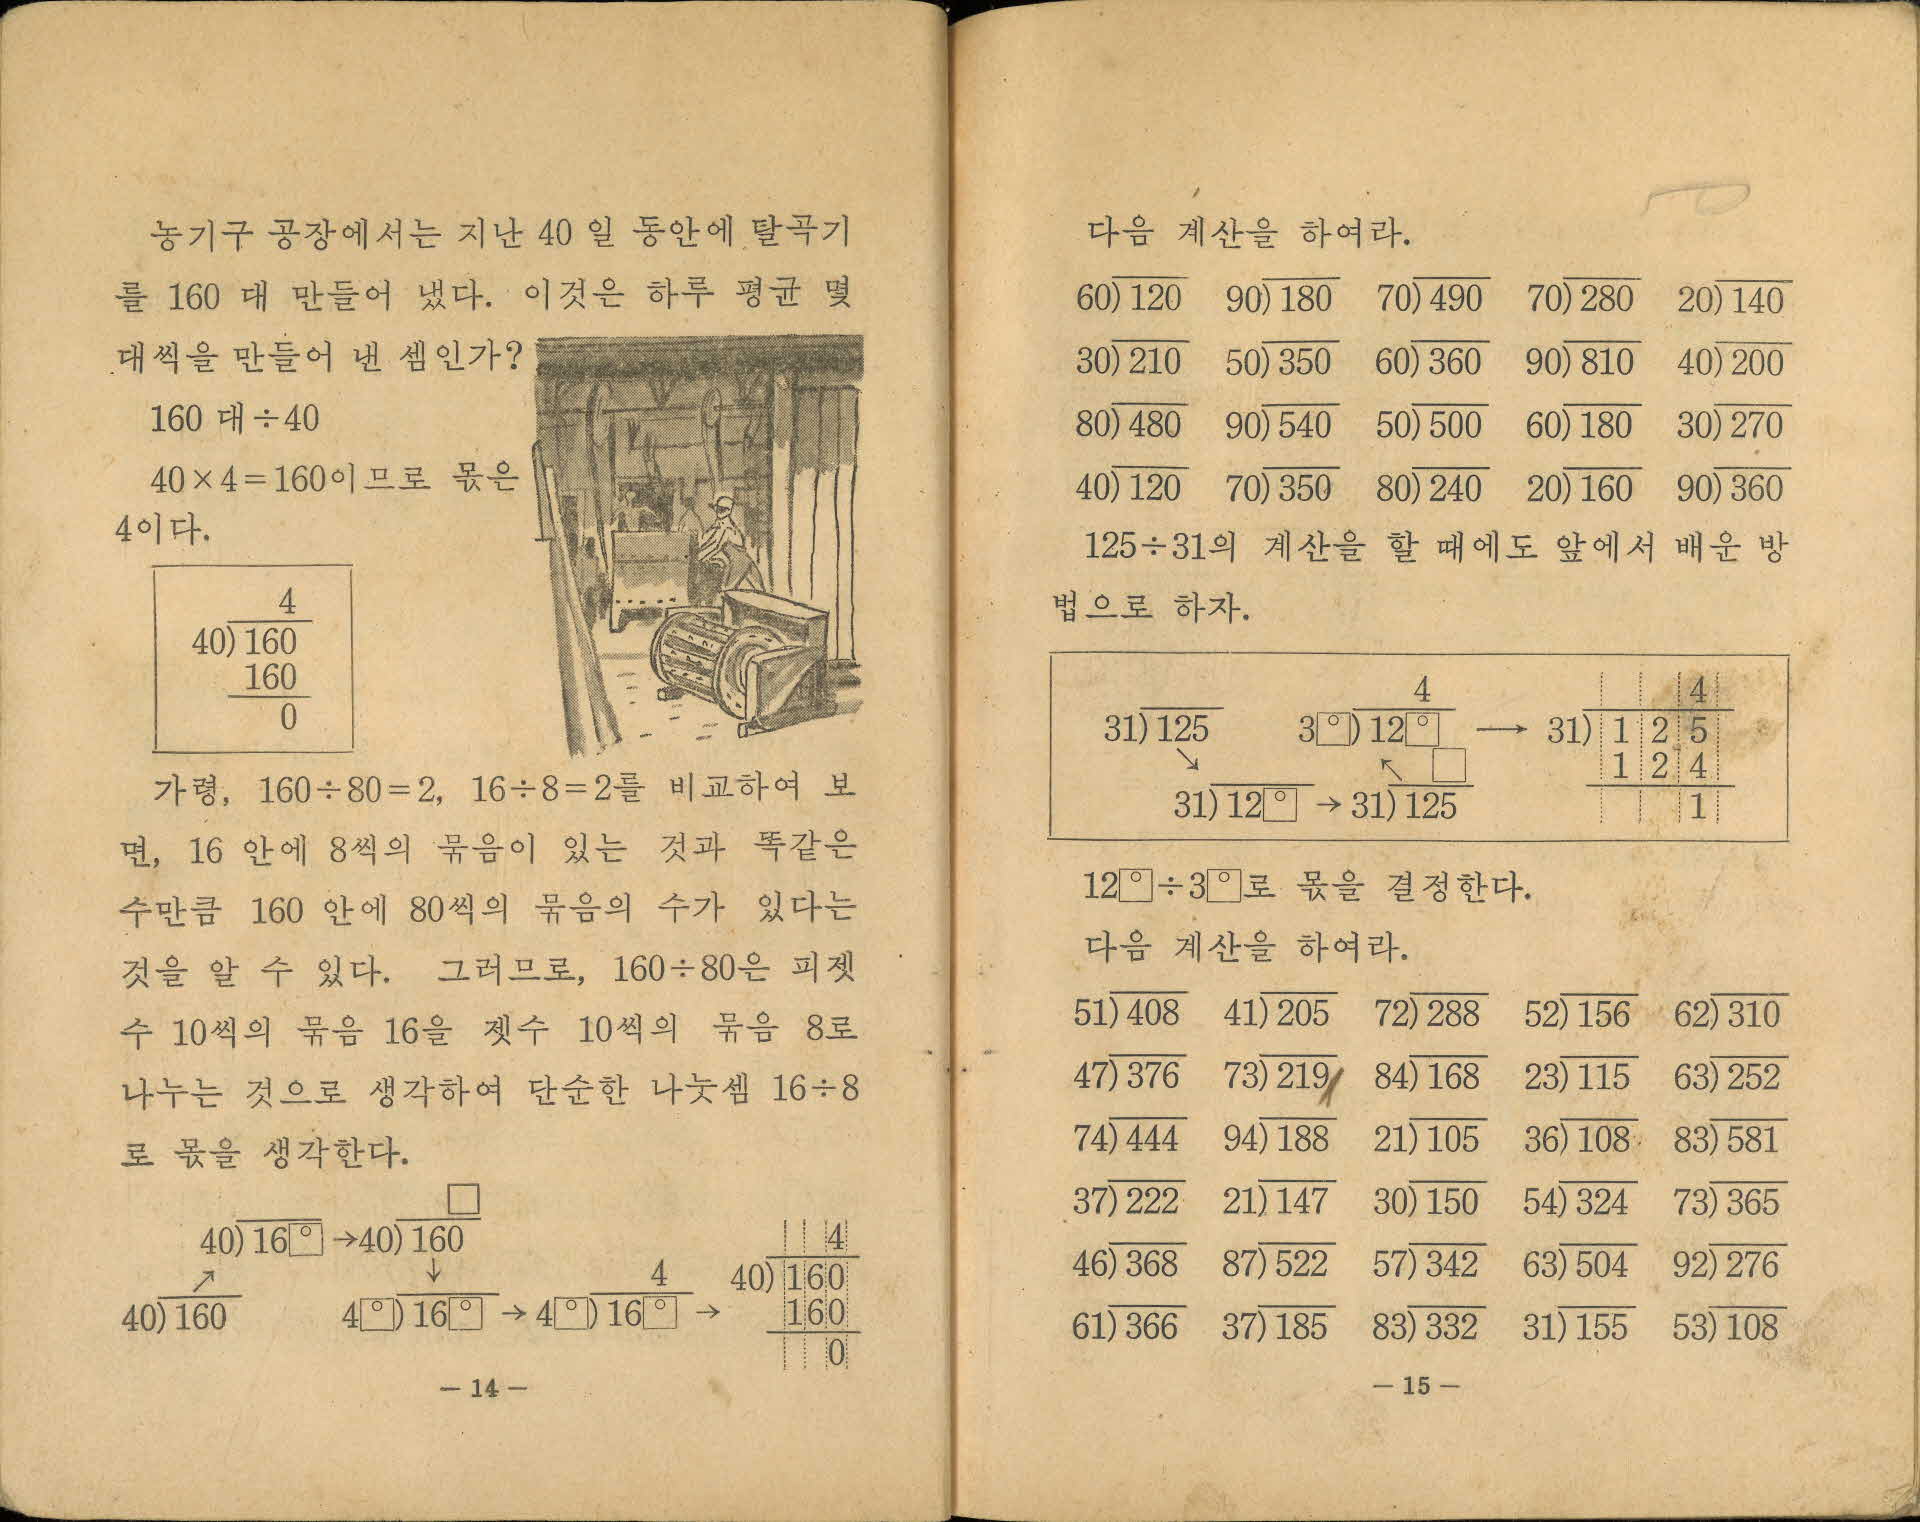 농기구 공장에서는 지난 40 일 동안에 탈곡기
를 160 대 만들어 냈다. 이것은 하루 평균 몇
대씩을 만들어 낸 셈인가?
160 대÷40
40×4=160이므로 몫은
4이다.
4
40)160
160
0
가령, 160÷80=2, 16÷8=2를 비교하여 보
면, 16 안에 8씩의 묶음이 있는 것과 똑같은
수만큼 160 안에 80씩의 묶음의 수가 있다는
것을 알 수 있다. 그러므로, 160÷80은 피젯
수 10씩의 묶음 16을 젯수 10씩의 묶음 8로
나누는 것으로 생각하여 단순한 나눗셈 16÷8
로 몫을 생각한다.
□
40)16□ →40)160
↗ ↓
40)160 4□)16□ → 4□)16□ →
4
4
40)160
160
0
— 14 —
다음 계산을 하여라.
60)120 90)180 70)490 70)280 20)140
30)210 50)350 60)360 90)810 40)200
80)480 90)540 50)500 60)180 30)270
40)120 70)350 80)240 20)160 90)360
125÷31의 계산을 할 때에도 앞에서 배운 방
법으로 하자.
4 4
31)125 3□)12□ → 31)1 2 5
↘ ↖ □ 1 2 4
31)12□ → 31)125 1
12□÷3□로 몫을 결정한다.
다음 계산을 하여라.
51)408 41)205 72)288 52)156 62)310
47)376 73)219 84)168 23)115 63)252
74)444 94)188 21)105 36)108 83)581
37)222 21)147 30)150 54)324 73)365
46)368 87)522 57)342 63)504 92)276
61)366 37)185 83)332 31)155 53)108
— 15 —